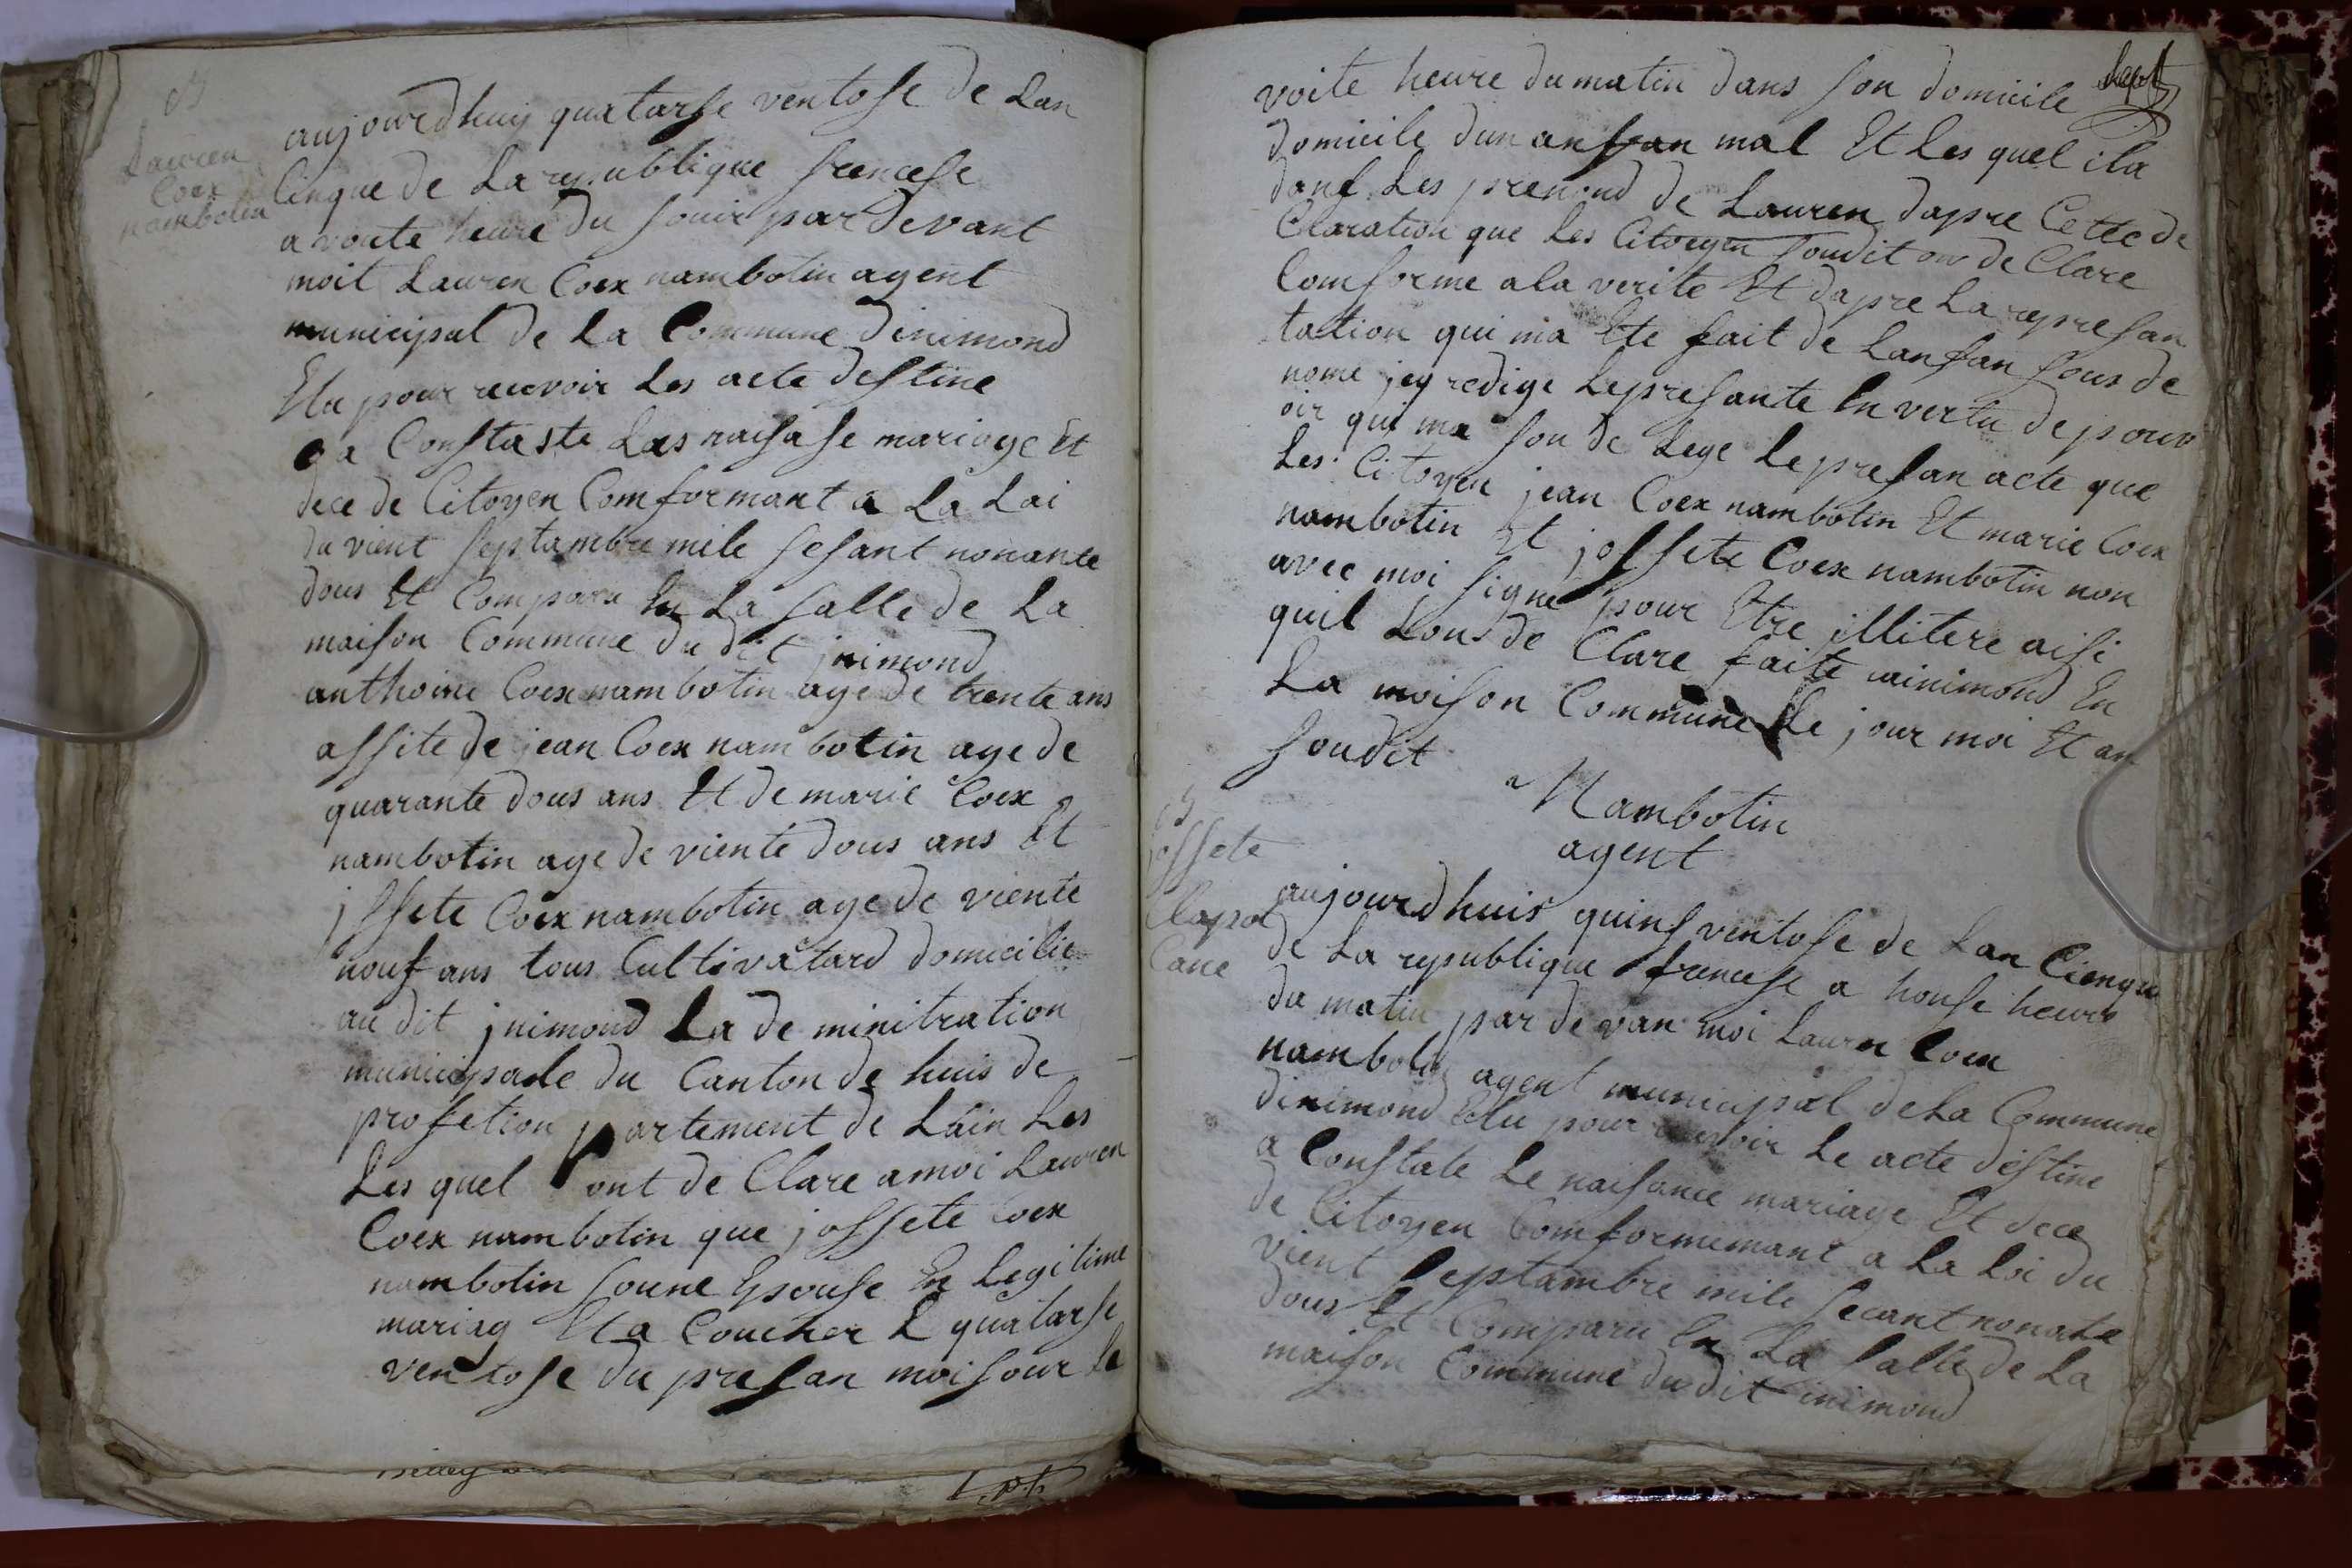 Lauren
Coex
nambotin
aujourdhuij quatarse ventose de Lan
Cinque de La republique francese
a voite heure du souir par devant
moit Lauren Coex nambotin agent
municipal de La Commune dinimond
Elu pour recevoir Les acte destine
a Constaste Las naisase mariage Et
dece de Citoyen Comformant a La Loi
du vient septambre mile sesant nonante
dous Et Comparu En La salle de La
maison Commune du dit jnimond
anthoine Coex nambotin age de trente ans
assite de jean Coex nambotin age de
quarante dous ans Et de marie Coex
nambotin age de viente dous ans Et
jssete Coex nambotin age de viente
nouf ans tous Cultivatard domicilie
au dit jnimond La de minitration
municipale du Canton de huis de
profetion partement de Lain Les
Les quel ont de Clare a moi Lauren
Coex nambotin que jossete Coex
nambotin soune Epouse En Legitime
mariag Et a Coucher L quatarse
ventose du presan moi sour le
sept
voite heure du matin dans son domicile
domicile dun anfan mal Et Les quel ila
donf Les prenond de Lauren dapre Cette de
Claration que Les Citoeyen soudit on de Clare
Comforme a la verite Et dapre La represan
tation qui ma Ete fait de Lanfan sous de
nome jey redige Lepresante En vertu de pouv
oir qui ma son de Lege Le presan acte que
Les Citoyen jean Coex nambotin Et marie Coex
nambotin Et jossete Coex nambotin non
avec moi signe pour Etre illitere aisi
quil Lous de Clare faite ainimond En
La moison Commune Le jour moi Et an
soudit
Nambotin
agent
jossete
Clapa
Cane
aujourdhuis quins ventose de Lan Cienque
de La republique francese a honse heure
du matin par de van moi Lauren Coex
nambotin agent municipal de La Commune
dinimond Elu pour recevoir Le acte destine
a Constate Le naisance mariage Et dece
de Citoyen Comformemant a La Loi du
vient septambre mile secant nonate
dous Et Comparu En La salle de La
maison Commune du dit inimond